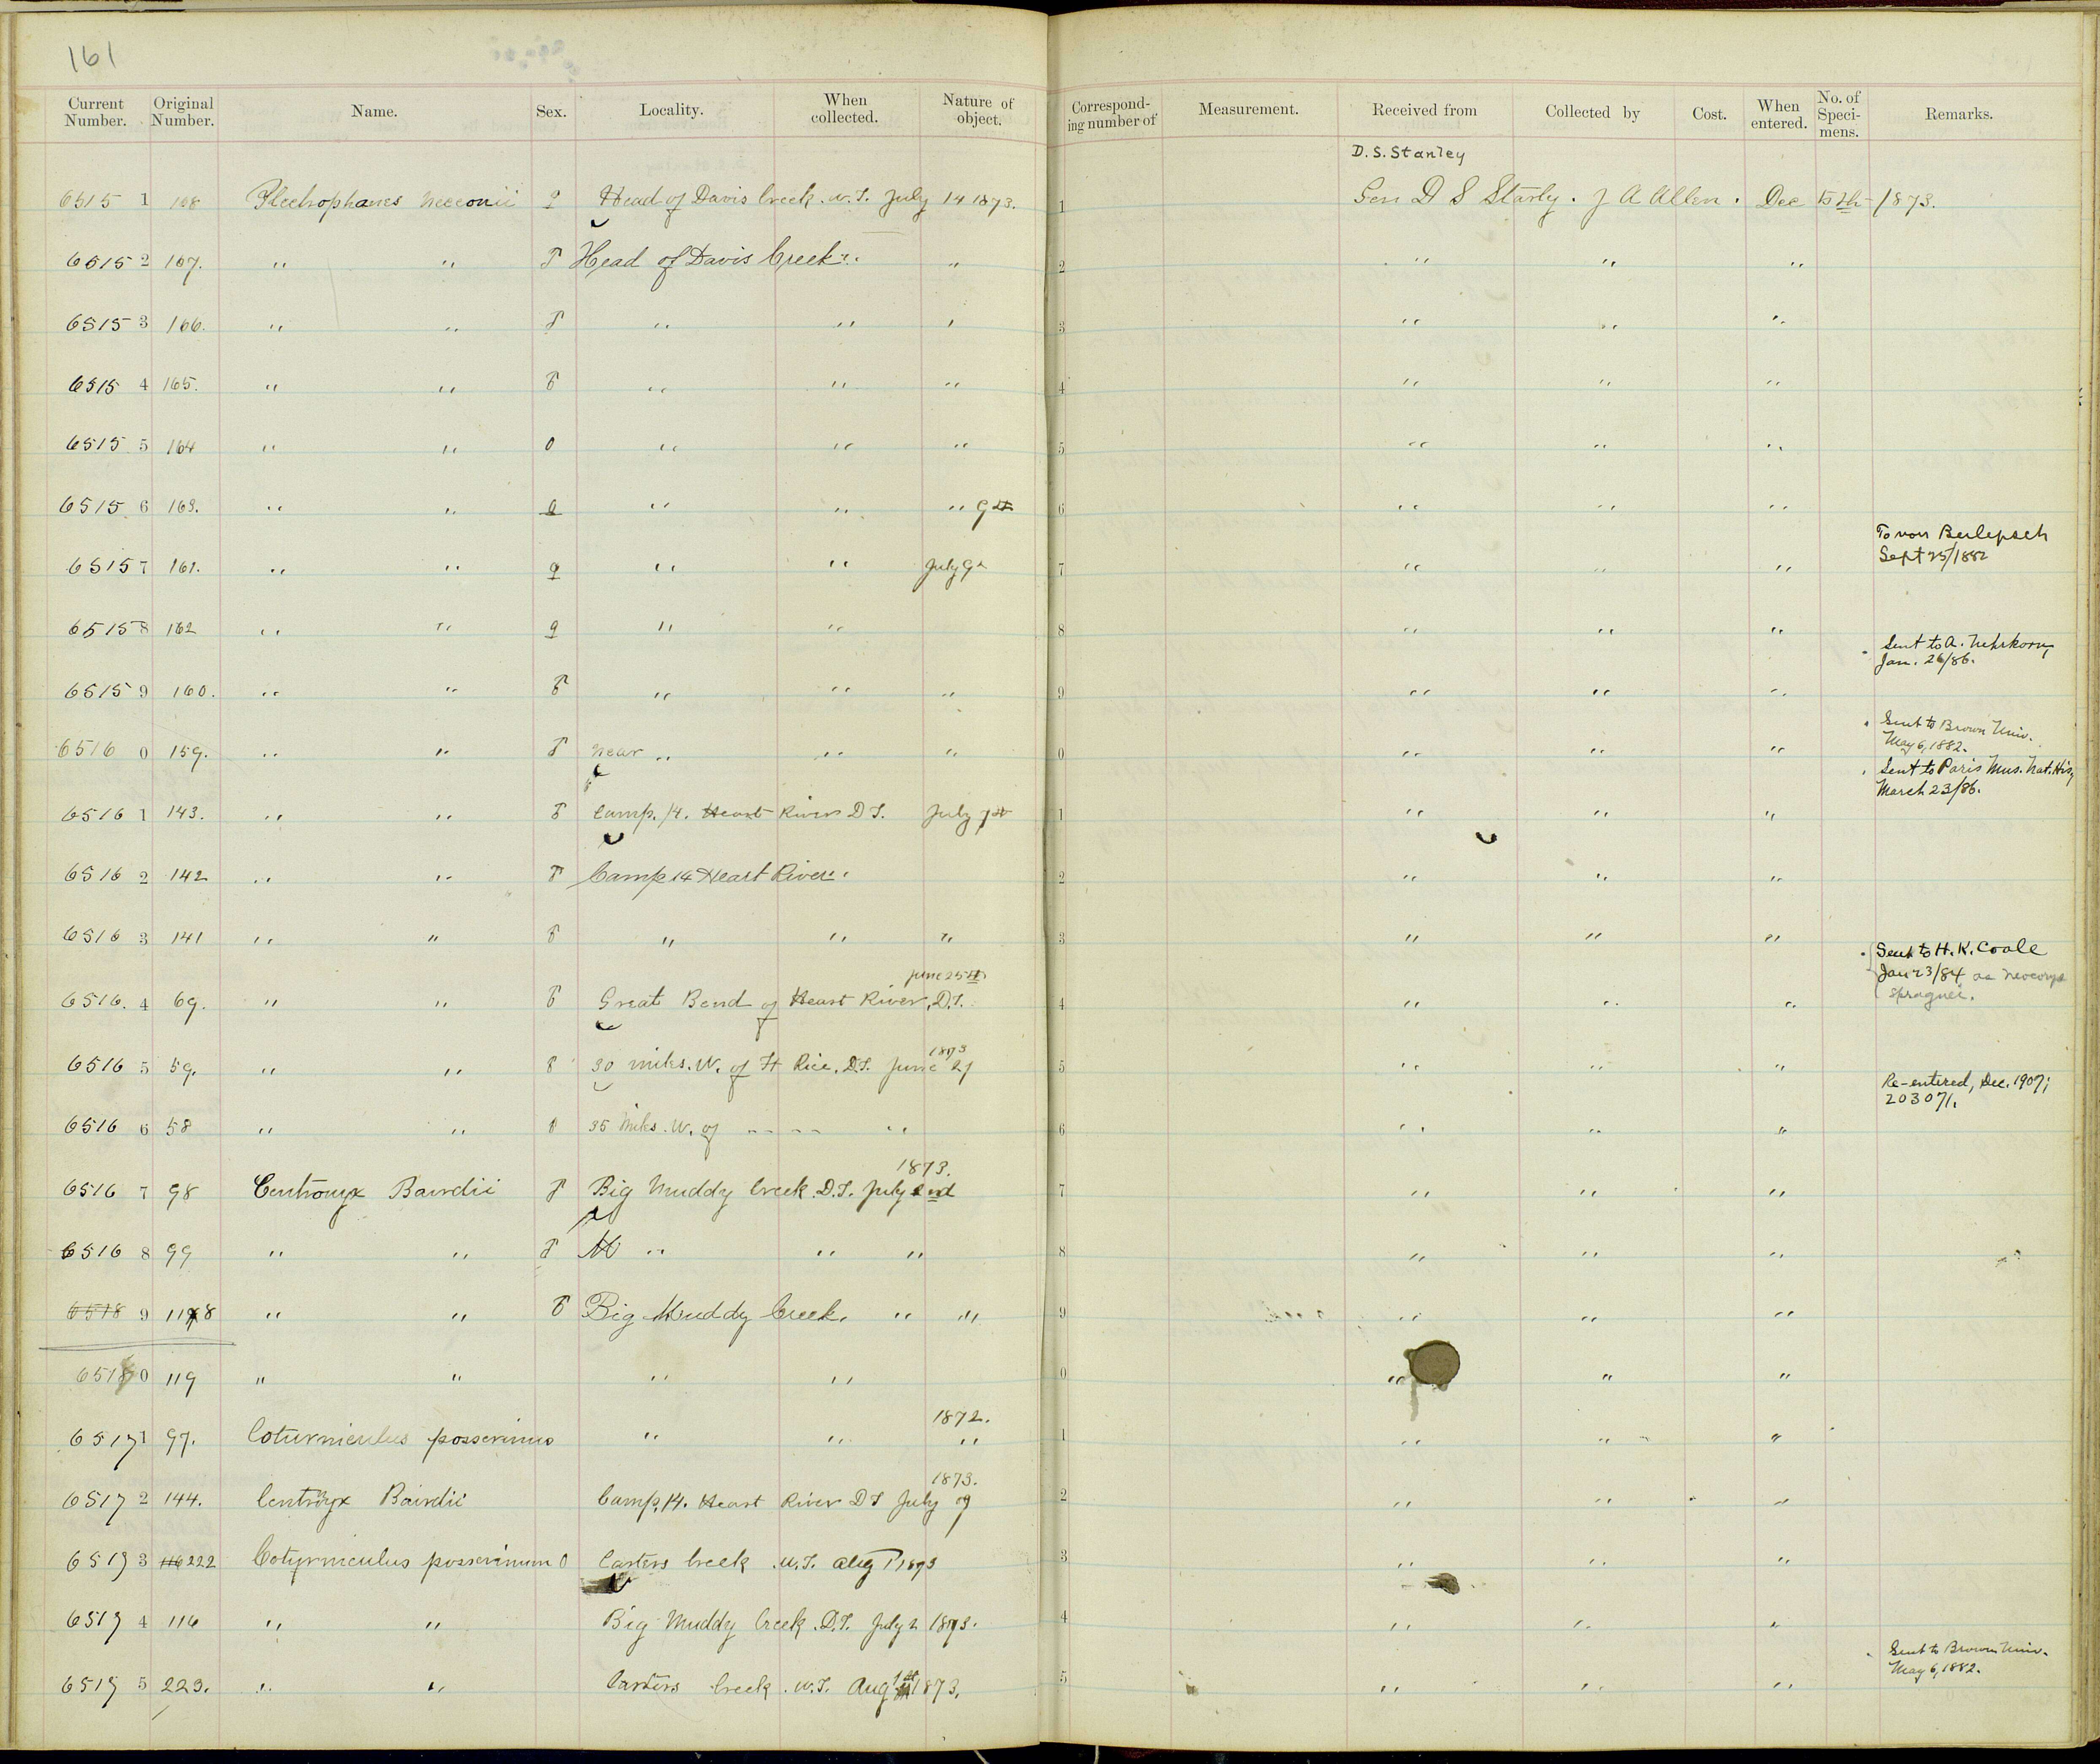 161
Current Number. Original Number. Name. Sex. Locality. When collected. Nature of object. Corresponding number of Measurement. Received from Collected by Cost. When entered. No. of Specimens. Remarks.
D. S. Stanley
6515 1 168 Plectrophanes ♀ Head of Davis Creek. W. T. July 14 1873. 1 Gen D S Stanly. J A Allen. Dec 15th 1873.
6515 2 167. " " Head of Davis Creek " " 2 " " "
6515 3 166. " " " " " 3 " " "
6515 4 165. " " " " " 4 " " "
6515 5 164 " " " " " 5 " " "
6515 6 163. " " " " " 9th 6 " " "
To von Berlepsch
Sept 25/1882
6515 7 161. " " ♀ " " July 9 7 " " "
6515 8 162 " " ♀ " " 8 " " "
Sent to A. Nehrkorn,
Jan. 26/86.
6515 9 160. " " " " " 9 " " "
Sent to Brown Univ.
May 6, 1882.
6516 0 159. " " near " " " 0 " " "
Sent to Paris Mus. Nat. His,
March 23/86.
6516 1 143. " " Camp. 14. Heart River D T. July 1 " " "
6516 2 142 " " Camp 14 Heart River " 2 " " "
6516 3 141 " " " " " 3 " " "
Sent to H. K. Coale
Jan 23/84 as neocorys
spraguei.
June 25th
6516. 4 69. " " Great Bend of Heart River, D.T. 4 " " "
1873
6516 5 59. " " 30 miles. W. of Ft Rice. D.T. June 5 " " "
Re-entered, Dec. 1907;
203071.
6516 6 58 " " 35 Miles. W. of " " " 6 " " "
1873.
6516 7 98 Centronyx Bairdii Big Muddy Creek. D.T. July 2nd 7 " " "
6516 8 99 " " " " " 8 " " "
6518 9 118 " " Big Muddy Creek. " " 9 " " "
0 119 " " " " 0 " " "
1872.
6517 1 97. Coturniculus passerinus " " " 1 " " "
1873.
6517 2 144. Centronyx Bairdii Camp. 14. Heart River D T July 9 2 " " "
6517 3 116 222 Coturniculus passerinum Carters Creek W. T. Aug 1 1873 3 " " "
6517 4 116 " " Big Muddy Creek. D.T. July 2 1873. 4 " " "
Sent to Brown Univ.
May 6, 1882.
6517 5 223. " " Carters Creek. W. T. Aug 1st 1873. 5 " " "